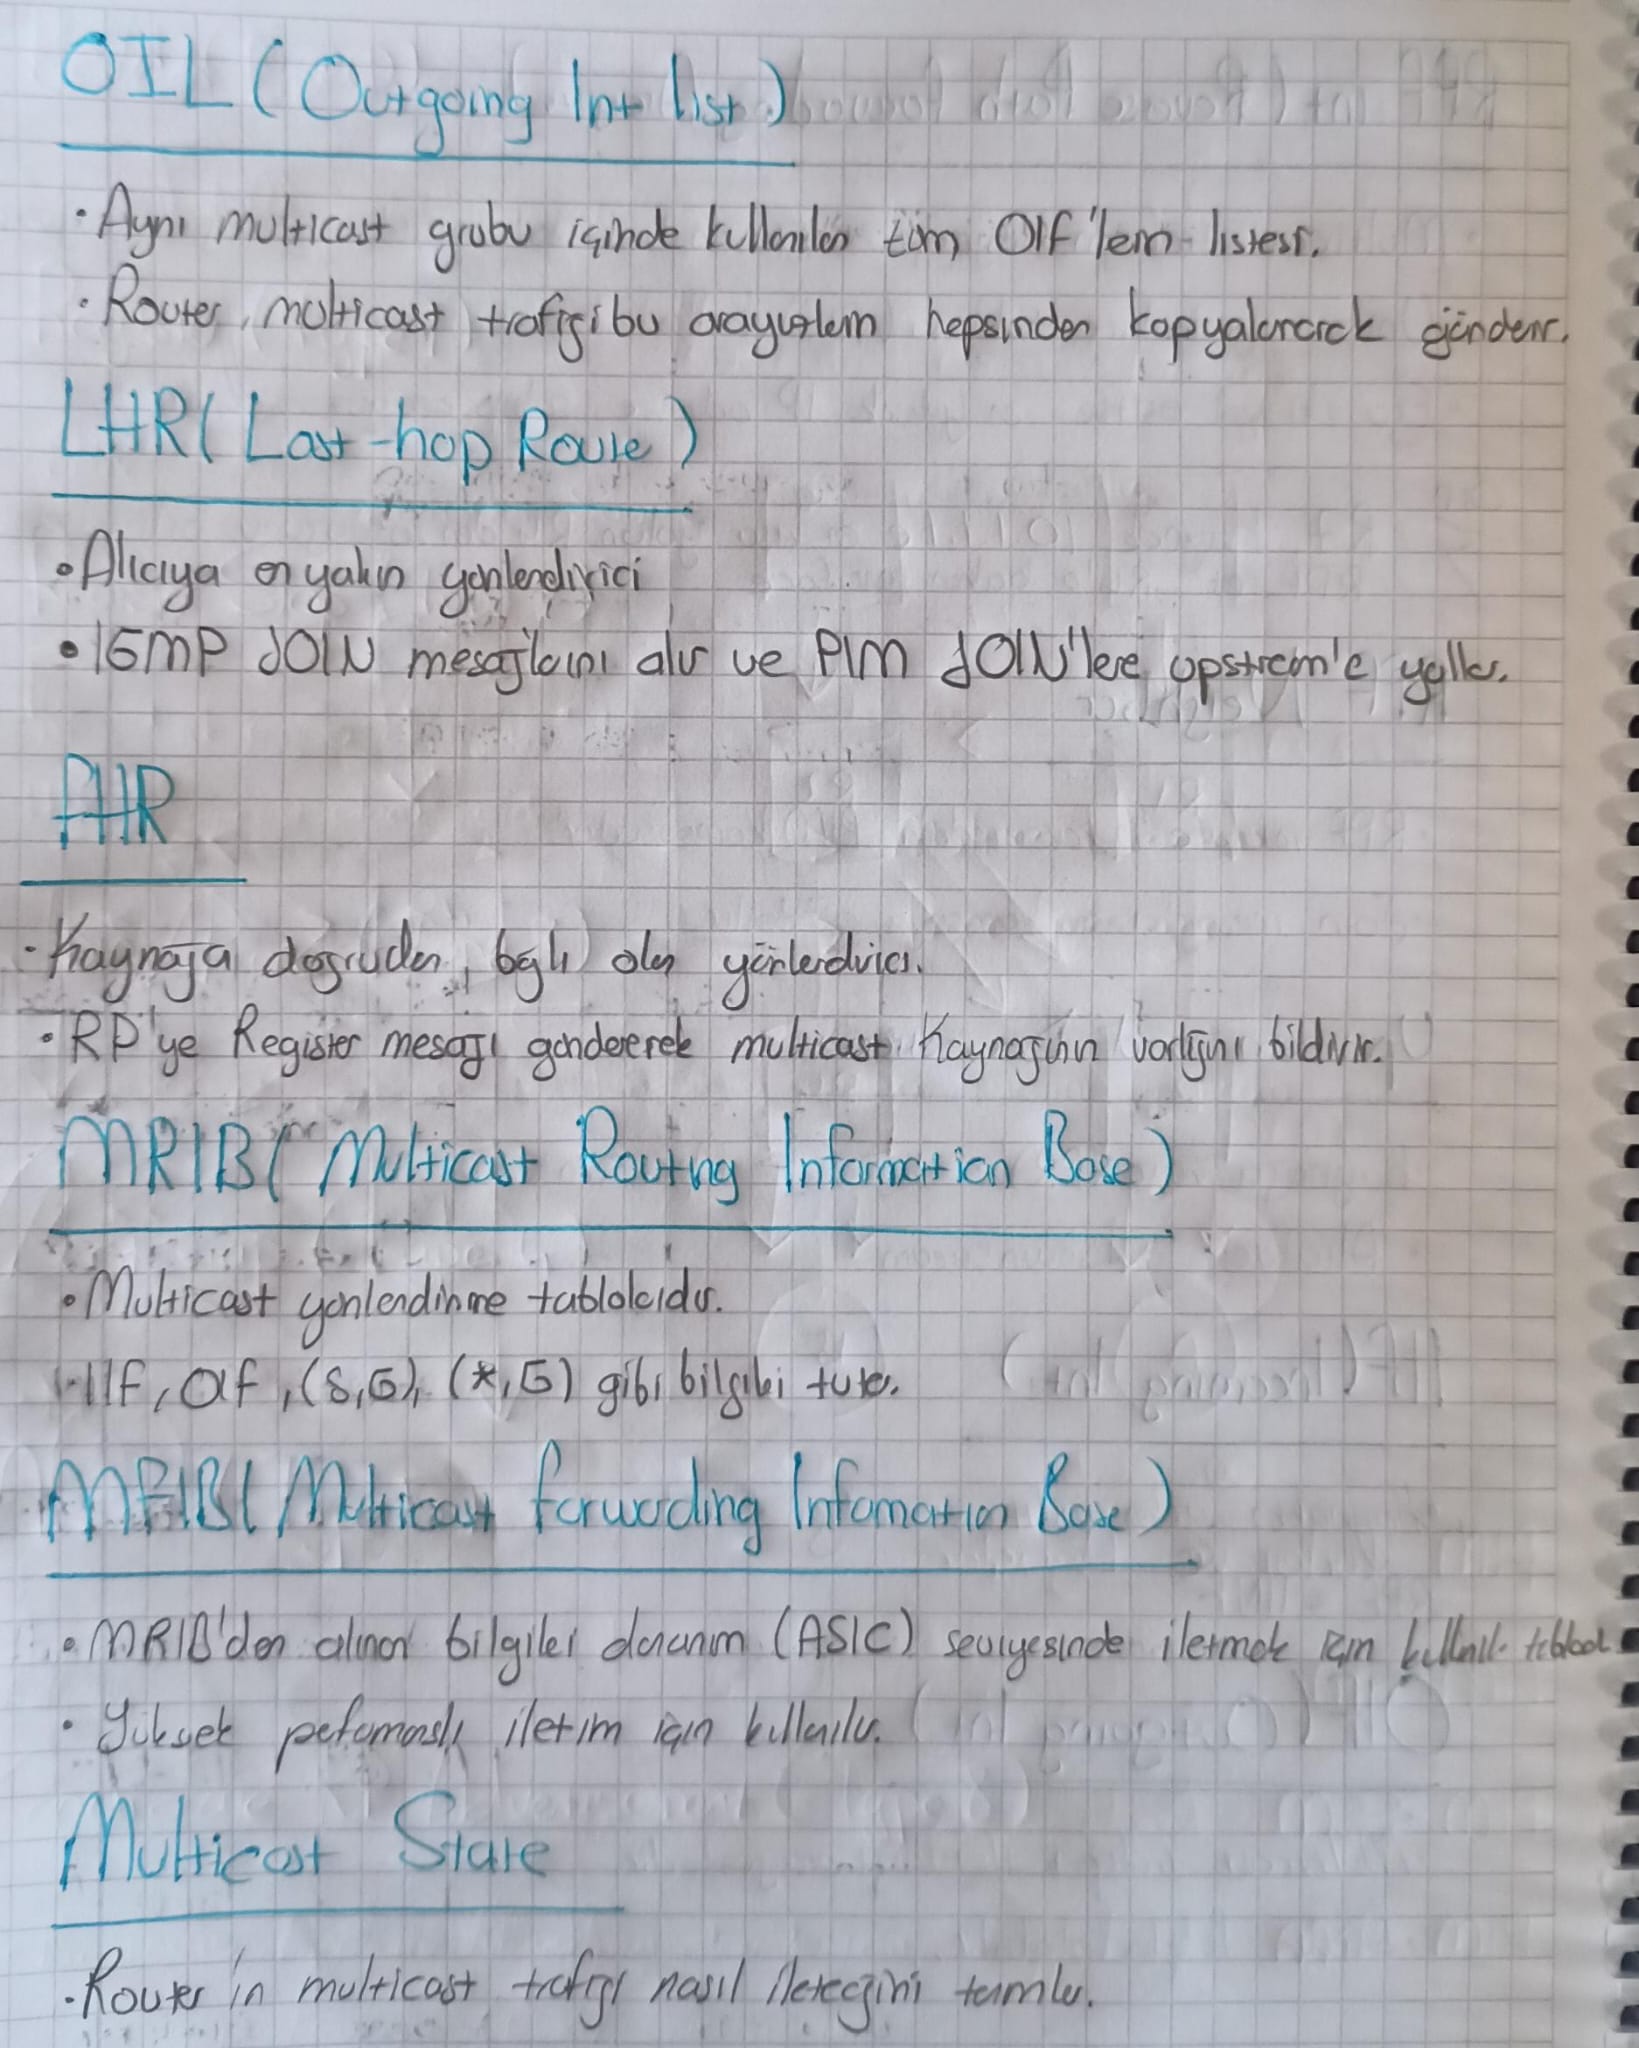 OIL (Outgoing Int list)
• Aynı multicast grubu içinde kullanılan tüm OIF'lerin listesi.
• Router, multicast trafiği bu arayüzlerin hepsinden kopyalanarak gönderir.
LHR (Last-hop Route)
• Alıcıya en yakın yönlendirici
• IGMP JOIN mesajlarını alır ve PIM JOIN'lere upstream'e yollar.
FHR
• Kaynağa doğrudan bağlı olan yönlendirici.
• RP'ye Register mesajı göndererek multicast kaynağının varlığını bildirir.
MRIB (Multicast Routing Information Base)
• Multicast yönlendirme tablolarıdır.
• IIF, OIF, (S,G), (*,G) gibi bilgileri tutar.
MFIB (Multicast Forwarding Information Base)
• MRIB'den alınan bilgileri donanım (ASIC) seviyesinde iletmek için kullanılır
• Yüksek performanslı iletim için kullanılır.
Multicast State
• Router'ın multicast trafiği nasıl ileteceğini tanımlar.